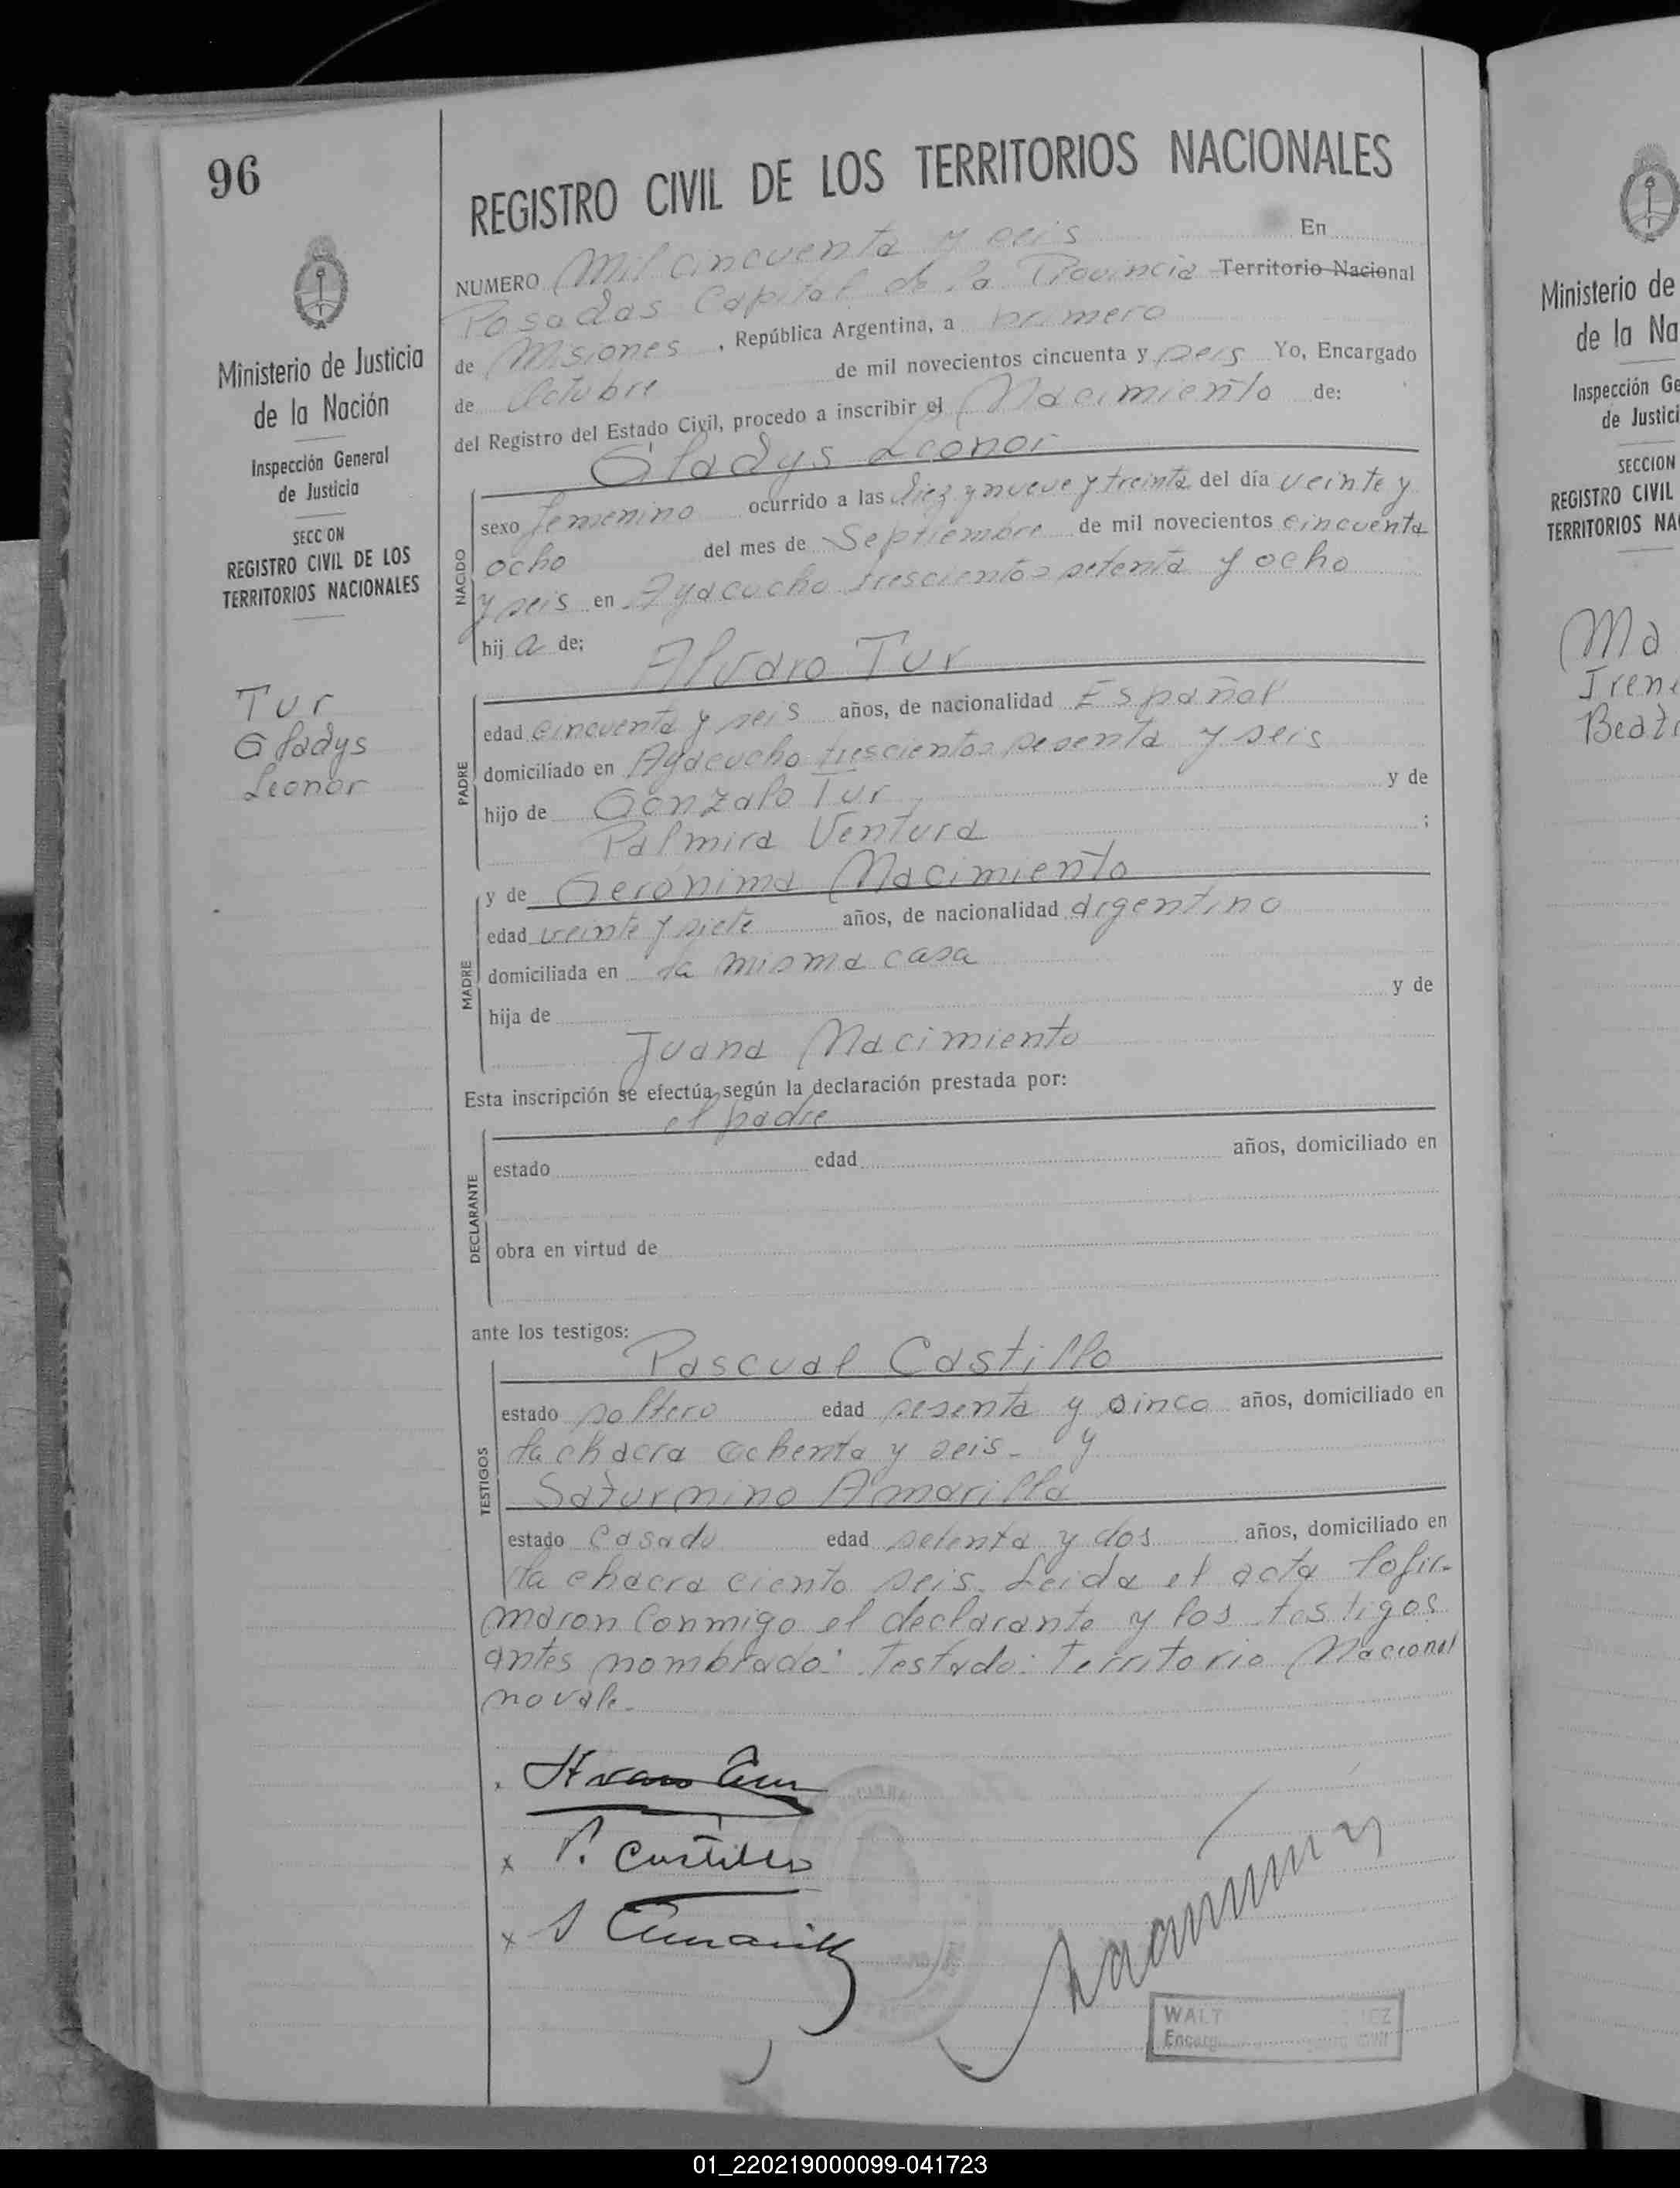 96
REGISTRO CIVIL DE LOS TERRITORIOS NACIONALES
NUMERO Mil cincuenta y seis En
Posadas Capital de la Provincia Territorio Nacional
de Misiones, República Argentina, a primero
de Octubre de mil novecientos cincuenta y seis Yo, Encargado
del Registro del Estado Civil, procedo a inscribir el Nacimiento de:
Gladys Leonor
NACIDO
sexo femenino ocurrido a las diez y nueve y treinta del día veinte y
ocho del mes de Septiembre de mil novecientos cincuenta
y seis en Ayacucho trescientos setenta y ocho
hija de:
Alvaro Tur
PADRE
edad cincuenta y seis años, de nacionalidad Español
domiciliado en Ayacucho trescientos sesenta y seis
hijo de Gonzalo Tur y de
Palmira Ventura ;
y de Gerónima Nacimiento
MADRE
edad veinte y siete años, de nacionalidad argentino
domiciliada en la misma casa
hija de y de
Juana Nacimiento
Esta inscripción se efectúa según la declaración prestada por:
el padre
DECLARANTE
estado edad años, domiciliado en
obra en virtud de
ante los testigos:
Pascual Castillo
TESTIGOS
estado soltero edad sesenta y cinco años, domiciliado en
la chacra ochenta y seis - y
Saturnino Amarilla
estado casado edad setenta y dos años, domiciliado en
la chacra ciento seis. Leida el acta lofir-
maron conmigo el declarante y los testigos
antes nombrado: Testado: Territorio Nacional
no vale.
x P. Castillo
x S Amarilla
WALT EZ
Encarg
Ministerio de Justicia
de la Nación
Inspección General
de Justicia
SECCION
REGISTRO CIVIL DE LOS
TERRITORIOS NACIONALES
Tur
Gladys
Leonor
Ministerio de
de la Na
Inspección Ge
de Justici
SECCION
REGISTRO CIVIL
TERRITORIOS NA
Ma
Irene
Beatr
01_220219000099-041723